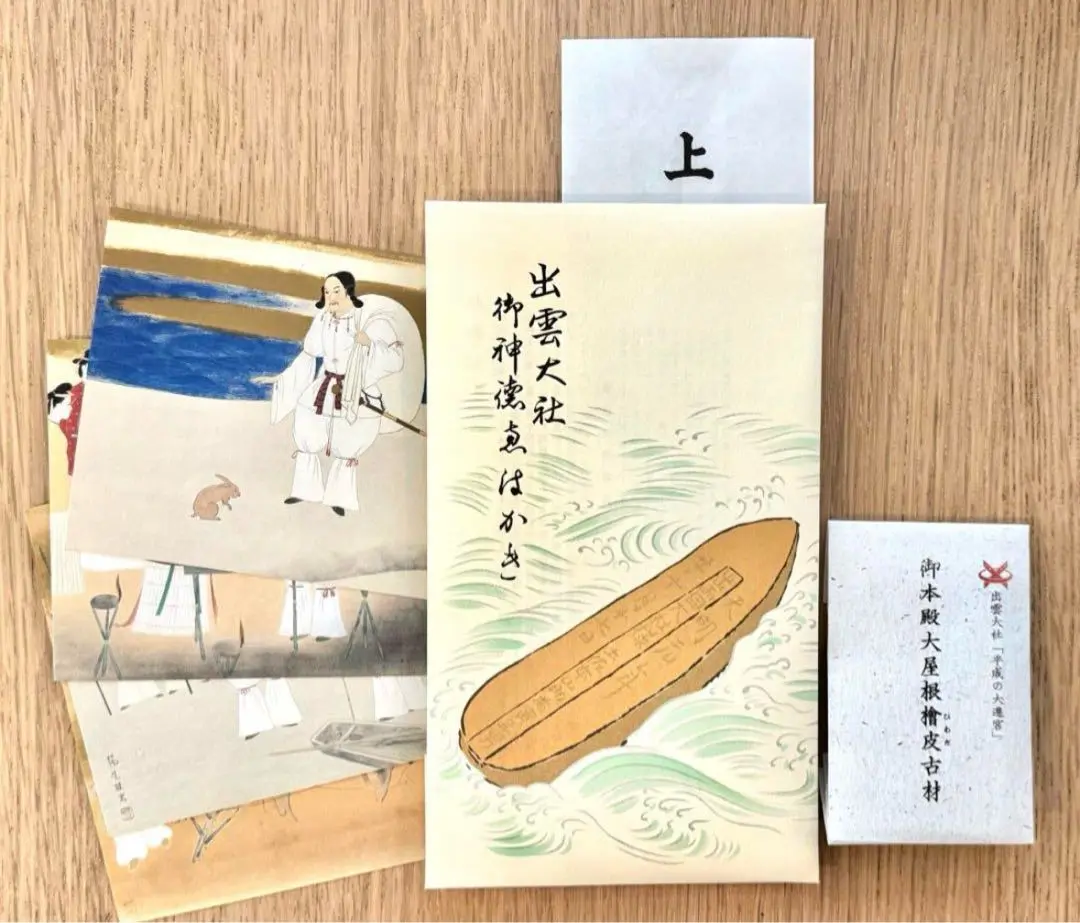 上
出雲大社
御神徳ゑはがき
出雲大社「平成の大遷宮」
御本殿大屋根檜皮古材
ひわだ